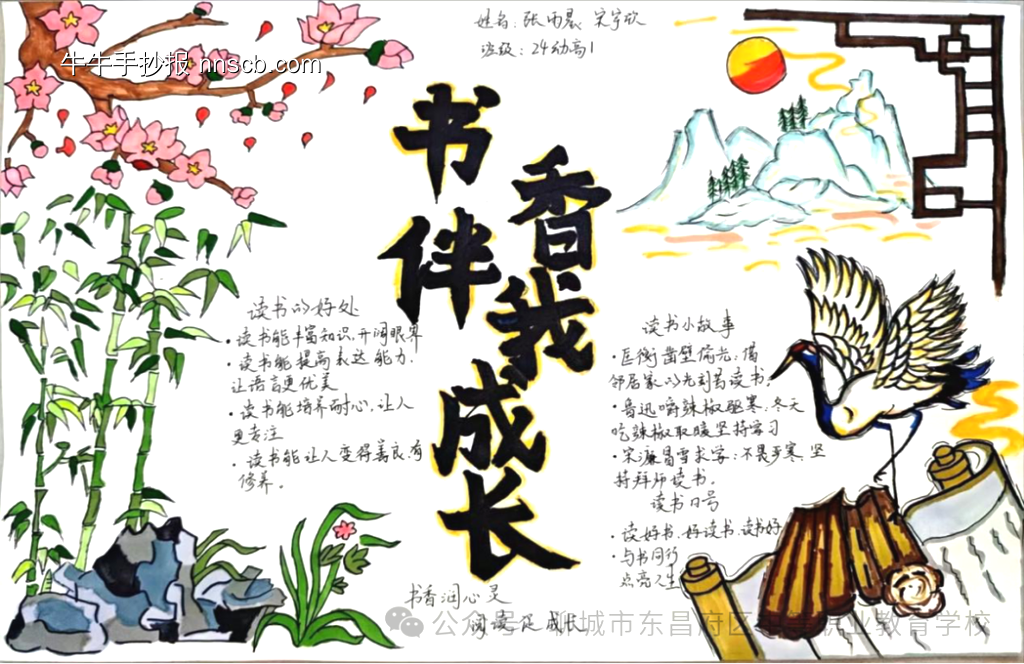 姓名:张雨晨 宋宇欣
班级:24幼高1
牛牛手抄报 nnscb.com
书香
伴我
成长
读书的好处
·读书能丰富知识,开阔眼界
·读书能提高表达能力,
让语言更优美
·读书能培养耐心,让人
更专注
·读书能让人变得善良,有
修养。
读书小故事
·匡衡凿壁偷光:借
邻居家的光刻苦读书。
·鲁迅嚼辣椒驱寒:冬天
吃辣椒取暖坚持学习
·宋濂冒雪求学:不畏严寒,坚
持拜师读书。
读书口号
·读好书、好读书、读书好
·与书同行
点亮人生
书香润心灵
阅读促成长
公众号 城市东昌府区 业教育学校